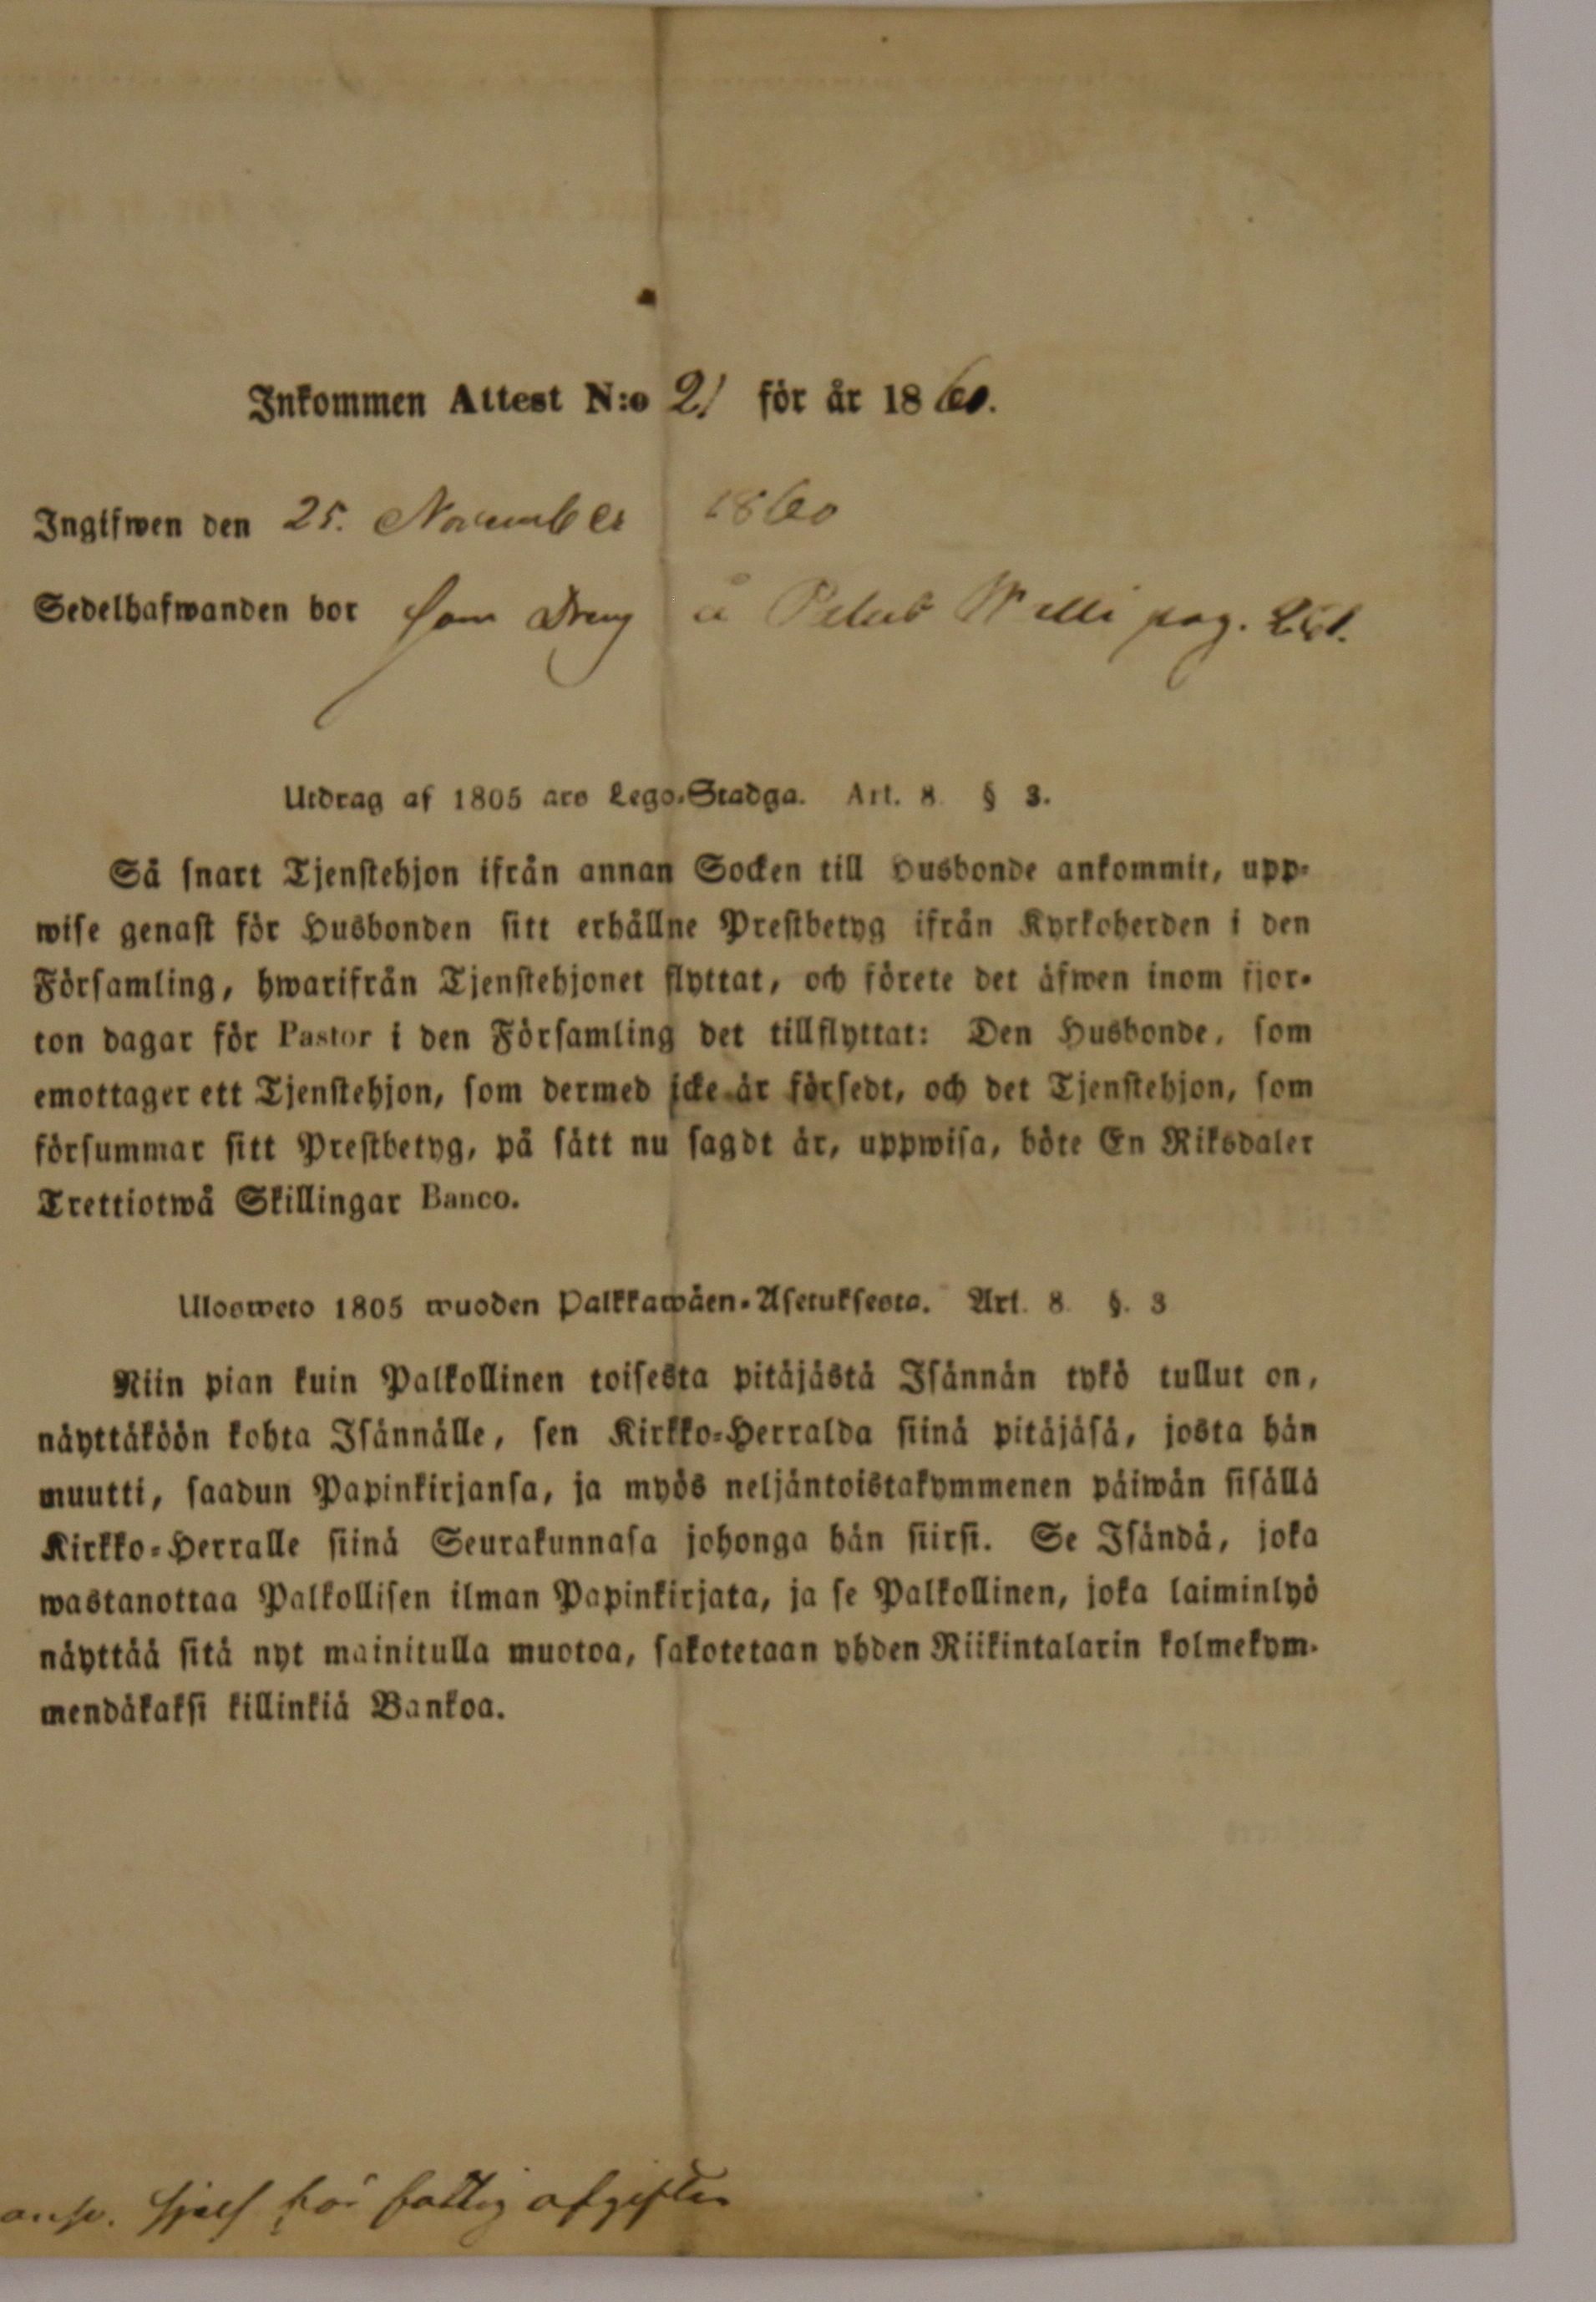 Inkommen Attest N:o 21 för år 1860.
Ingifwen den 25. November 1860
Sedelhafwanden bor som Dreng å Welli pag.
Utdrag af 1805 års Lego-Stadga. Art. 8 § 3.
Så snart Tjenstehjon ifrån annan Socken till Husbonde ankommit, upp-
wise genast för Husbonden sitt erhållne Prestbetyg ifrån Kyrkoherden i den
Församling, hwarifrån Tjenstehjonet flyttat, och förete det äfwen inom fjor-
ton dagar för Pastor i den Församling det tillflyttat: Den Husbonde, som
emottager ett Tjenstehjon, som dermed icke är försedt, och det Tjenstehjon, som
försummar sitt Prestbetyg, på sätt nu sagdt är, uppwisa, böte En Riksdaler
Trettiotwå Skillingar Banco.
Ulosweto 1805 wuoden Palkkawäen-Asetuksesta. Art. 8 §. 3
Niin pian kuin Palkollinen toisesta pitäjästä Isännän tykö tullut on,
näyttäköön kohta Isännälle, sen Kirkko-Herralda siinä pitäjäsä, josta hän
muutti, saadun Papinkirjansa, ja myös neljäntoistakymmenen päiwän sisällä
Kirkko-Herralle siinä Seurakunnasa johonga hän siirsi. Se Isändä, joka
wastanottaa Palkollisen ilman Papinkirjata, ja se Palkollinen, joka laiminlyö
näyttää sitä nyt mainitulla muotoa, sakotetaan yhden Riikintalarin kolmekym-
mendäkaksi killinkiä Bankoa.
answ. sjelf för fattig afgifter